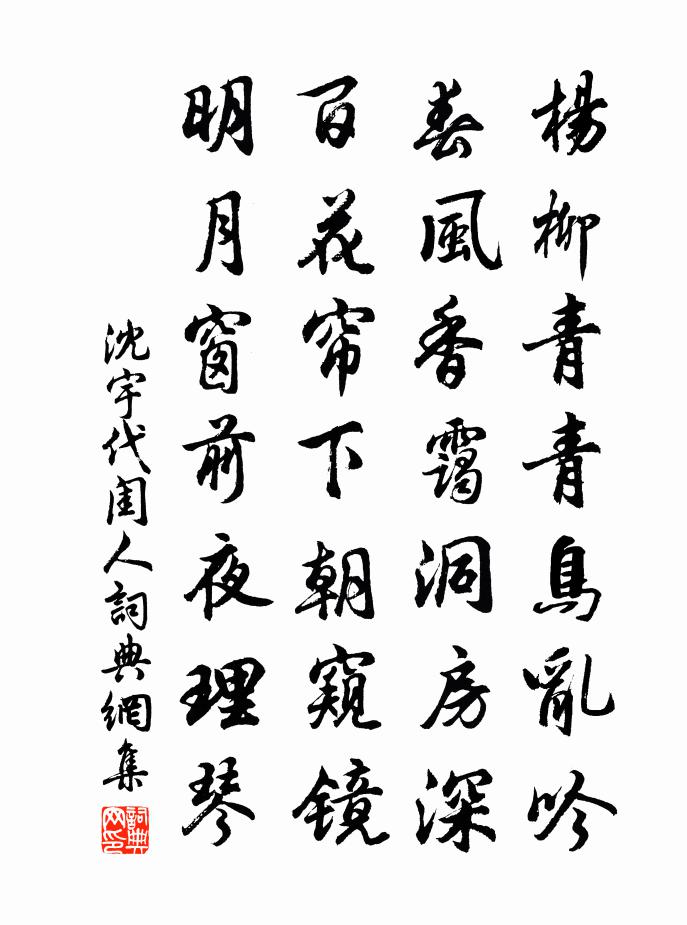 楊柳青青鳥亂吟
春風香靄洞房深
百花帘下朝窺镜
明月窗前夜理琴
沈宇代闺人詞典網集
詞典网印